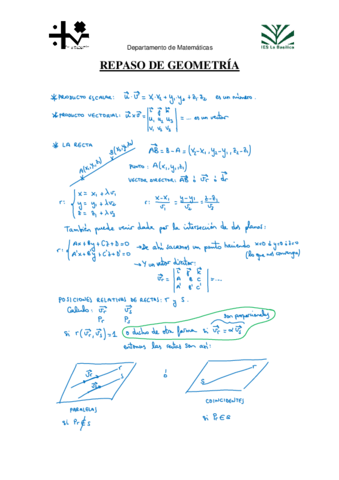 Departamento de Matemáticas
IES La Basílica
REPASO DE GEOMETRÍA
* PRODUCTO ESCALAR: u · v = x₁·x₂ + y₁·y₂ + z₁·z₂ es un número.
* PRODUCTO VECTORIAL: u x v = | i j k | = ... es un vector
| u₁ u₂ u₃ |
| v₁ v₂ v₃ |
* LA RECTA
AB = B - A = (x₂-x₁, y₂-y₁, z₂-z₁)
PUNTO: A(x₁, y₁, z₁)
VECTOR DIRECTOR: AB ó vr ó dr
r: { x = x₁ + λv₁
y = y₁ + λv₂
z = z₁ + λv₃
r: x-x₁/v₁ = y-y₁/v₂ = z-z₁/v₃
También puede venir dada por la intersección de dos planos:
r: { Ax+By+Cz+D=0
A'x+B'y+C'z+D'=0
→ De ahí sacamos un punto haciendo x=0 ó y=0 ó z=0
(lo que me convenga)
→ Y un vector director:
vr = | i j k | = ...
| A B C |
| A' B' C' |
POSICIONES RELATIVAS DE RECTAS: r y s.
Calculo: vr vs
Pr Ps
son proporcionales
si r(vr, vs) = 1 o dicho de otra forma si vr = k vs
entonces las rectas son así:
vr r
vs s
ó
r
s
PARALELAS
si Pr ∉ s
COINCIDENTES